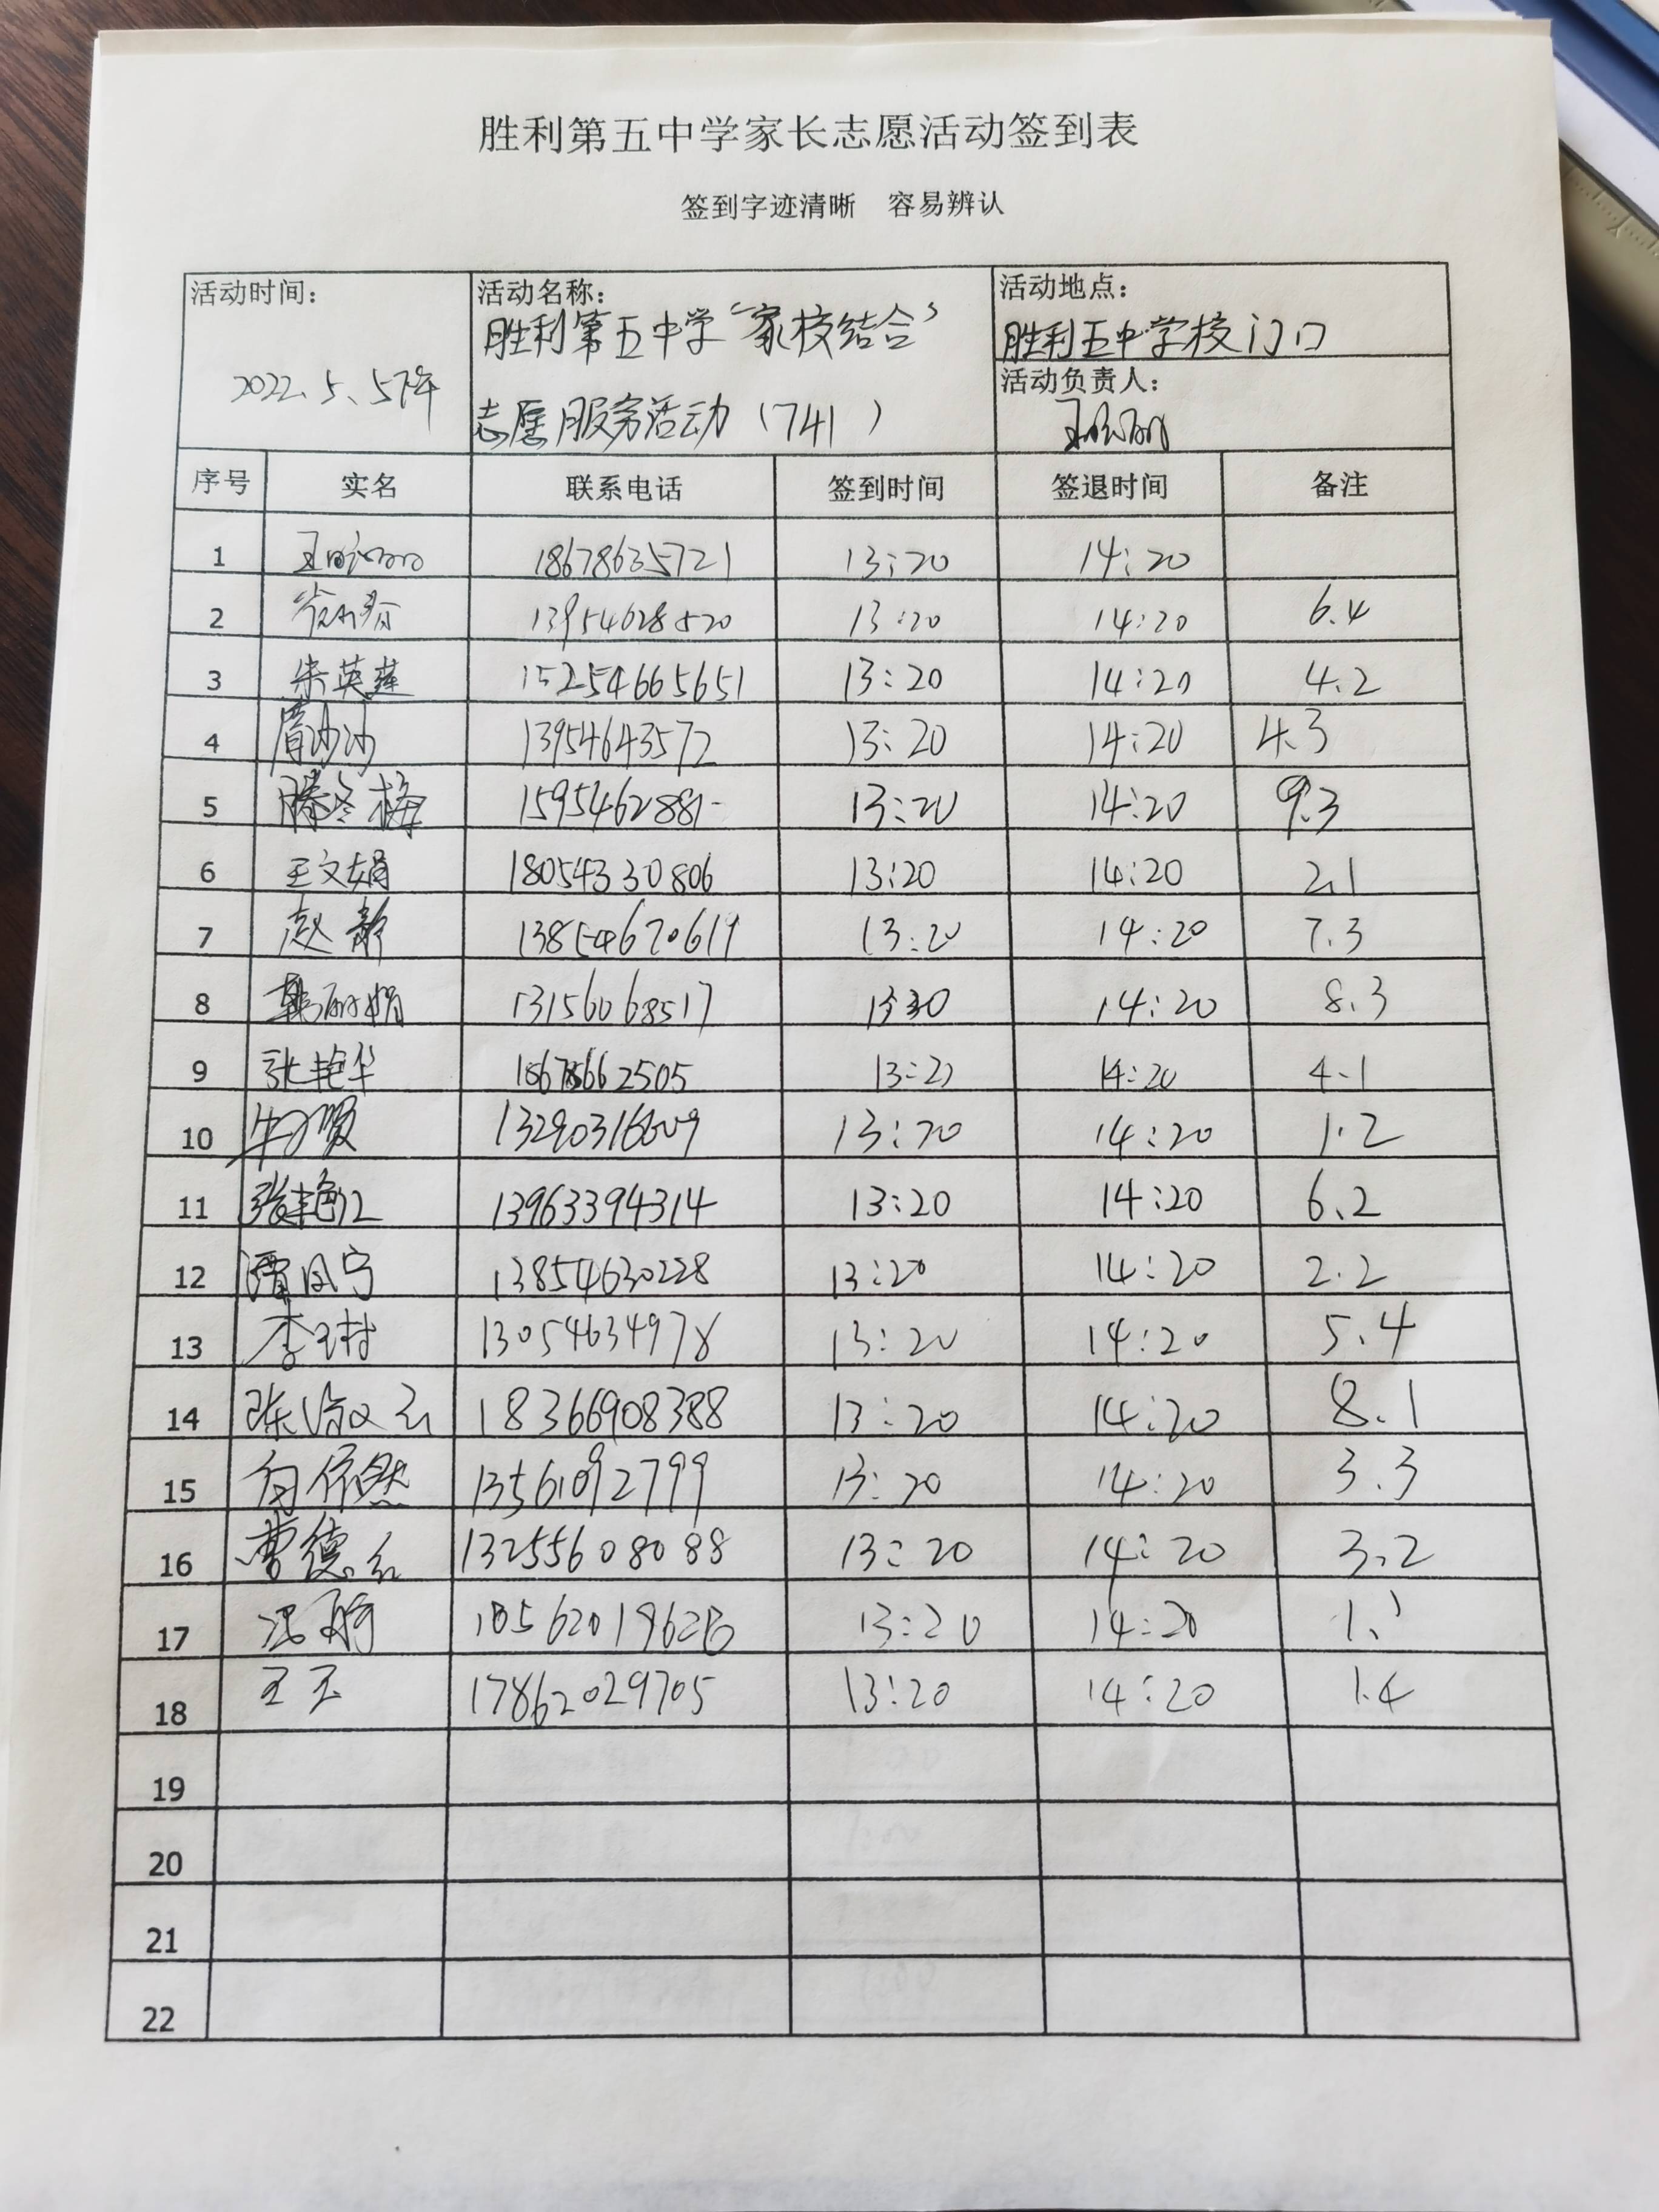 胜利第五中学家长志愿活动签到表
签到字迹清晰 容易辨认
活动时间: 活动名称: 活动地点:
胜利第五中学“家校结合” 胜利五中学校门口
2022.5.5下午 活动负责人:
志愿服务活动(741)
序号 实名 联系电话 签到时间 签退时间 备注
1 18678635721 13:20 14:20
2 13954628520 13:20 14:20 6.4
3 朱英莲 15254665651 13:20 14:20 4.2
4 13954643572 13:20 14:20 4.3
5 滕冬梅 13:20 14:20 9.3
6 王文娟 18054330806 13:20 14:20 2.1
7 赵静 13854670619 13:20 14:20 7.3
8 韩丽娟 13156068517 14:20 8.3
9 张艳华 14:20 4.1
10 13:20 14:20 1.2
11 张艳江 13963394314 13:20 14:20 6.2
12 13854630228 13:20 14:20 2.2
13 李琳 13054634978 13:20 14:20 5.4
14 18366908388 13:20 14:20 8.1
15 13561092799 13:20 14:20 3.3
16 曹德红 13255608088 13:20 14:20 3.2
17 13:20 14:20 1.1
18 王玉 17862029705 13:20 14:20 1.4
19
20
21
22